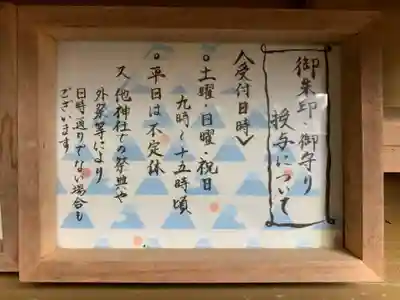 御朱印・御守り
授与について
〈受付日時〉
○土曜・日曜・祝日
九時〜十五時頃
○平日は不定休
又他神社の祭典や
外祭等により
日時通りでない場合も
ございます